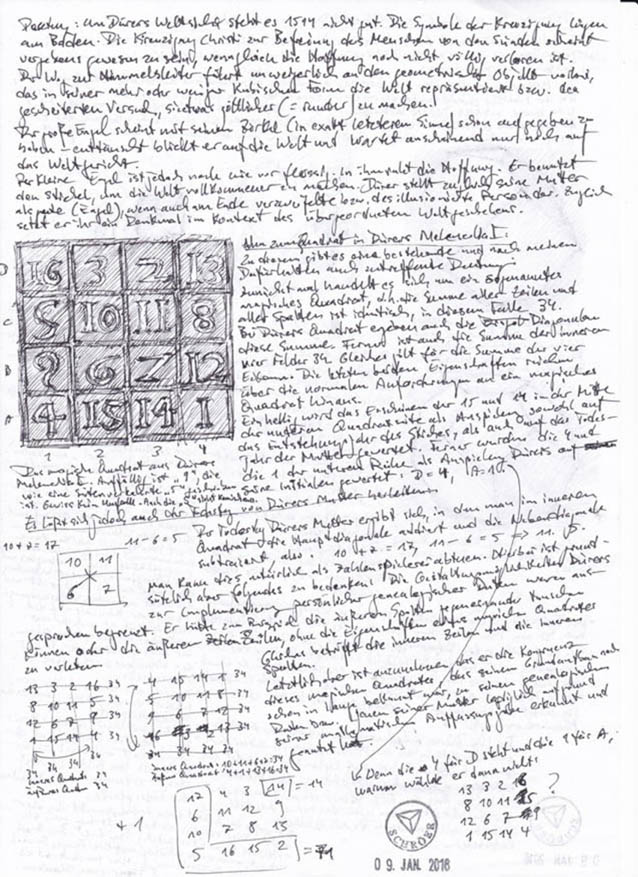 Deutung: Um Dürers Weltsicht steht es 1514 nicht gut. Die Symbole der Kreuzigung liegen
am Boden. Die Kreuzigung Christi zur Befreiung des Menschen von den Sünden scheint
vergebens gewesen zu sein, wenngleich die Hoffnung noch nicht völlig verloren ist.
Der Weg zur Himmelsleiter führt unweigerlich an dem geometrischen Objekt vorbei,
das in seiner mehr oder weniger kubischen Form die Welt repräsentiert bzw. den
gescheiterten Versuch, sie etwas göttlicher (= runder) zu machen.
Der große Engel scheint mit seinem Zirkel (in exakt letzterem Sinne) schon aufgegeben zu
haben – enttäuscht blickt er auf die Welt und wartet anscheinend nur noch auf
das Weltgericht.
Der kleine Engel ist jedoch nach wie vor fleissig. In ihm ruht die Hoffnung. Er benutzt
den Stichel, um die Welt vollkommener zu machen. Dürer stellt zugleich seine Mutter
als gute (Engel), wenn auch am Ende verzweifelte bzw. desillusionierte Person dar. Zugleich
setzt er ihr ein Denkmal im Kontext des übergeordneten Weltgeschehens.
zum Quadrat in Dürers Melencolia I:
Zu diesem gibt es eine bestehende und nach meinem
Dafürhalten auch zutreffende Deutung.
Zunächst mal handelt es sich um ein sogenanntes
magisches Quadrat, d.h. die Summe aller Zeilen und
aller Spalten ist identisch, in diesem Falle 34.
Bei Dürers Quadrat ergeben auch die Diagonalen
diese Summe. Ferner ist auch die Summe der inneren
vier Felder 34. Gleiches gilt für die Summe der vier
Ecken. Die letzten beiden Eigenschaften reichen
über die normalen Anforderungen an ein magisches
Quadrat hinaus.
Einhellig wird das Erscheinen der 15 und 14 in der Mitte
der unteren Quadratseite als Anspielung sowohl auf
das Entstehungsjahr des Stiches, als auch auf das Todes-
Jahr der Mutter gewertet. Ferner wurden die 4 und
die 1 der unteren Reihe als Anspielung Dürers auf
seine Initialen gewertet: D = 4, A = 1.
D
16 3 2 13
C
5 10 11 8
B
9 6 7 12
A
4 15 14 1
1 2 3 4
Das magische Quadrat aus Dürers
Melencolia I. Auffällig ist "9", die
wie eine seitenverkehrte
ist. Gewiss kein Unfall.
Es lässt sich jedoch auch der Todestag von Dürers Mutter herleiten.
10 + 7 = 17 11 - 6 = 5
10 11
6 7
Der Todestag Dürers Mutter ergibt sich, in dem man im inneren
Quadrat die Hauptdiagonale addiert und die Nebendiagonale
subtrahiert, also: 10 + 7 = 17, 11 - 6 = 5 ⇒ 17. 5.
Man kann dies natürlich als Zahlenspielerei abtun. Dabei ist grund-
sätzlich aber folgendes zu bedenken: Die Gestaltungsmöglichkeiten Dürers
zur Implementierung persönlicher genealogischer Daten waren aus-
gesprochen begrenzt. Er hätte zum Beispiel die äußeren Spalten gegeneinander tauschen
können oder die äußeren Zeilen, ohne die Eigenschaften eines magischen Quadrates
zu verletzen.
Gleiches betrifft die inneren Zeilen und die inneren
Spalten.
Letztlich aber ist anzunehmen, dass er die Kongruenz
dieses magischen Quadrates, das seinem Grundaufbau nach
schon lange bekannt war, zu seinen genealogischen
Daten bzw. jenen seiner Mutter lediglich aufgrund
seiner mathematischen Auffassungsgabe erkannt und
genutzt hat.
13 3 2 16 34
8 10 11 5 34
12 6 7 9 34
1 15 14 4 34
34 34 34 34
inneres Quadrat: 34
äußeres Quadrat: 34
4 15 14 1 34
5 10 11 8 34
9 6 7 12 34
16 3 2 13 34
34 34 34 34
inneres Quadrat: 10+11+6+7 = 34
äußeres Quadrat: 4+1+13+16 = 34
+ 1
17 4 3 14 = 14
6 11 12 9
10 7 8 13
5 16 15 2
Denn die 4 für D steht und die 1 für A,
warum wählte er dann nicht:
13 3 2 16
8 10 11 5 ?
12 6 7 9
1 15 14 4
SCHRÖER
09. JAN. 2018